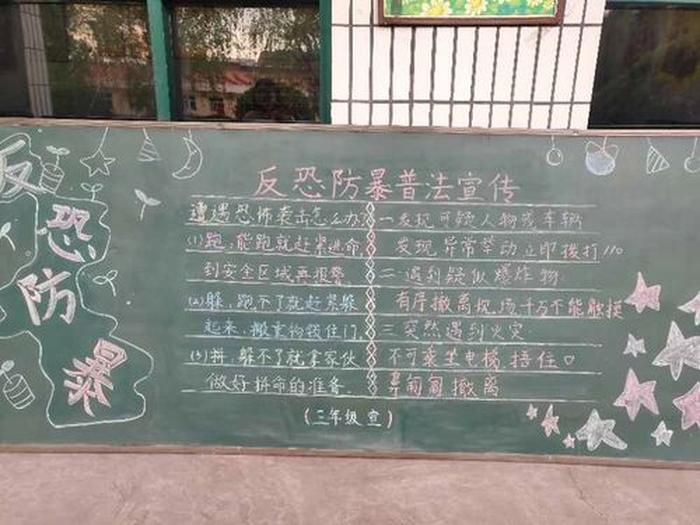 反恐防暴
反恐防暴普法宣传
遭遇恐怖袭击怎么办?
(1)跑:能跑就赶紧逃命,
到安全区域再报警
(2)躲,跑不了就赶紧躲
起来,搬重物钱住门,
(3)拼:躲不了就拿家伙
做好拼命的准备。
一发现可疑人物或车辆
发现异常举动立即拨打110
二遇到疑似爆炸物
有序撤离现场千万不能触摸
三突然遇到火灾
不可乘坐电梯捂住口
鼻匍匐撤离
(三年级宣)